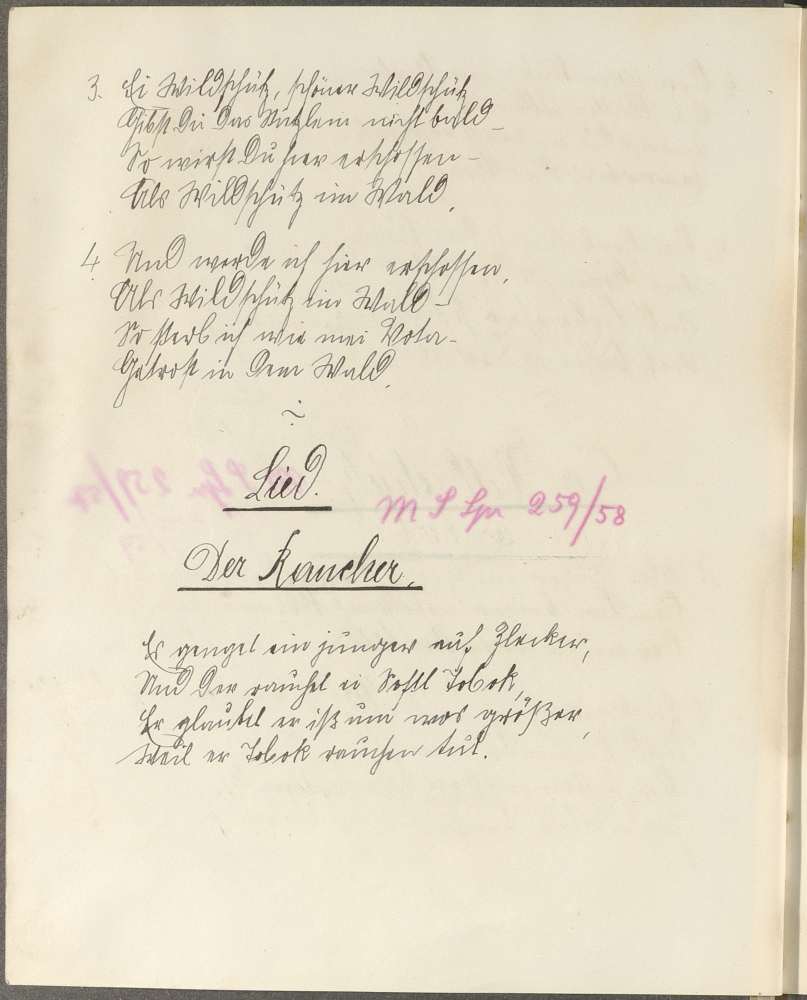 3. Ei Wildschütz, schöner Wildschütz
Gibst Du das nicht bald –
So wirst Du hier erschossen –
Als Wildschütz im Wald.
4. Und werde ich hier erschossen,
Als Wildschütz im Wald –
So sterb ich wie mei Vota –
Getrost in dem Wald.
~
Lied.
M S Lpr 259/58
Der Raucher.
Es genget ein junger auf
Und der rauchet Tobok,
Er glaubet er ist um wos größer,
Weil er Tobok rauchen tut.